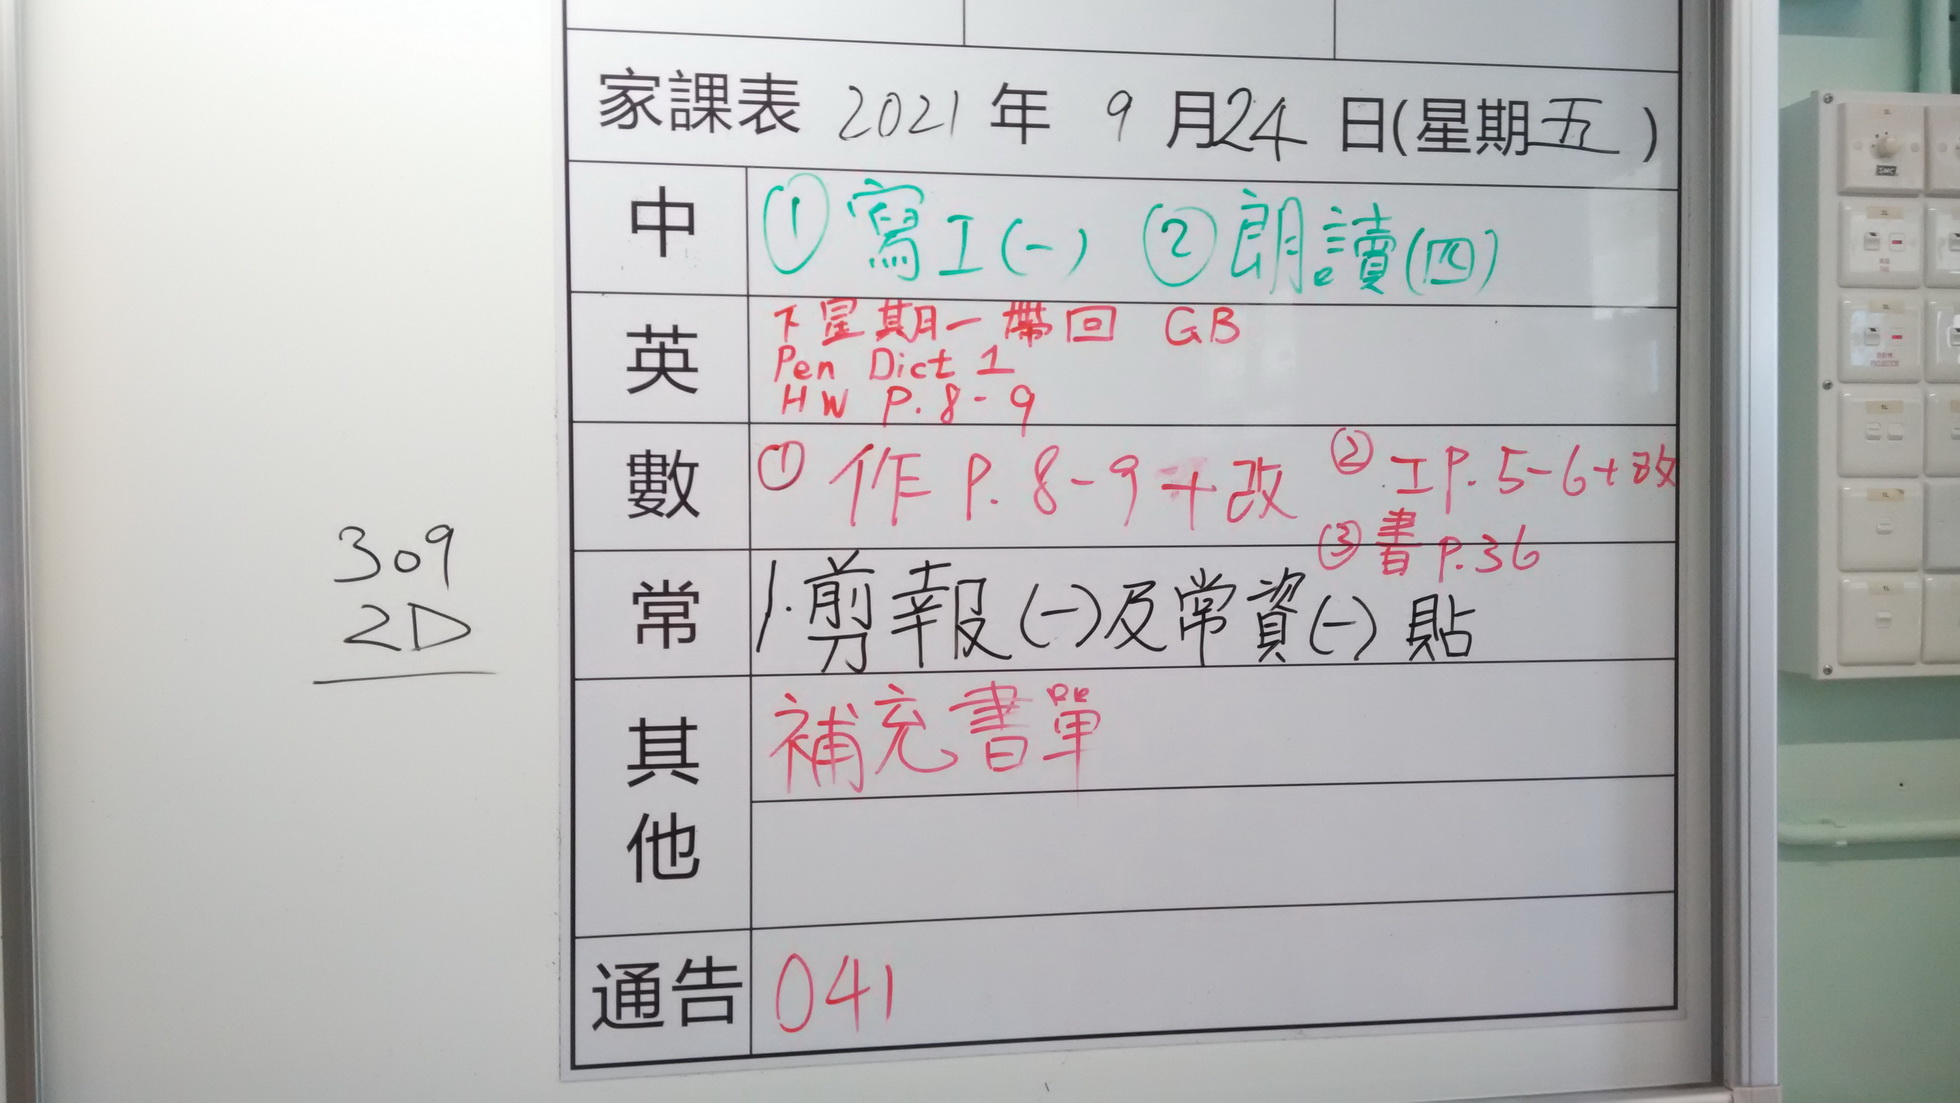 家課表 2021 年 9 月 24 日(星期 五 )
中 ① 寫工(一) ② 朗讀(四)
英 下星期一帶回 GB
Pen Dict 1
HW P.8-9
數 ① 作 P. 8-9+改 ② 工P.5-6+改
③ 書 P.36
常 1.剪報(一)及常資(一)貼
其他 補充書單
通告 041
309
2D